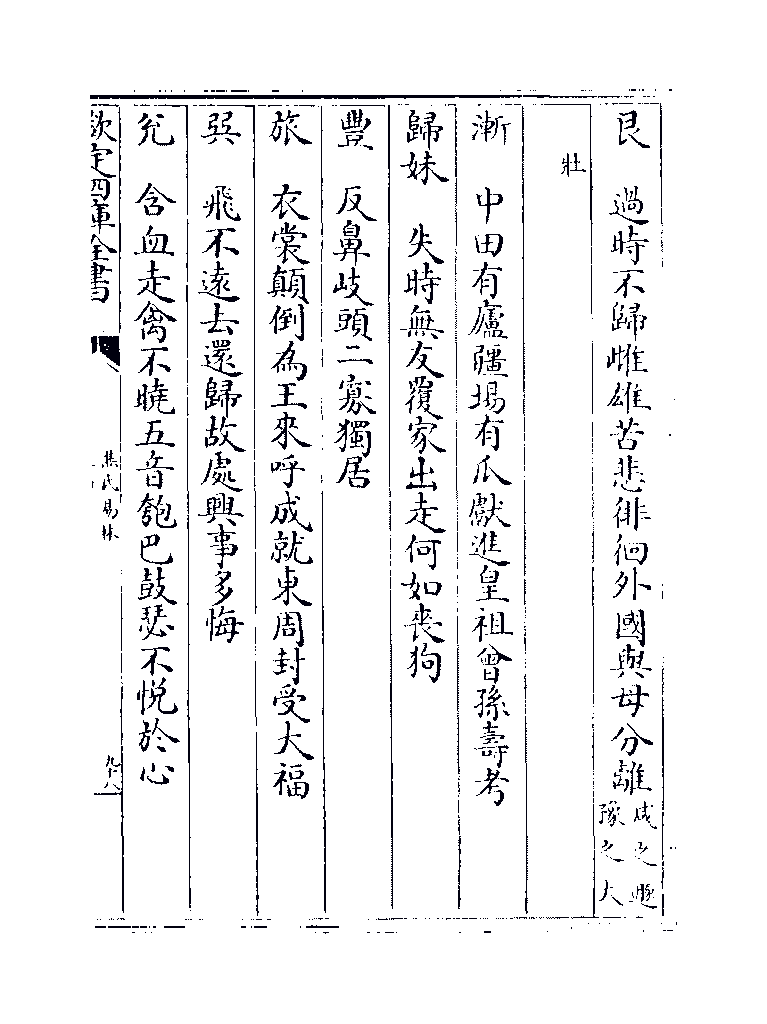 艮　過時不歸雌雄苦悲徘徊外國與母分離咸之遯豫之大
壯
漸　中田有廬疆場有瓜獻進皇祖曾孫壽考
歸妹　失時無友覆家出走何如喪狗
豐　反鼻岐頭二寡獨居
旅　衣裳顛倒為王來呼成就東周封受大福
巽　飛不遠去還歸故處興事多悔
兌　含血走禽不曉五音瓠巴鼓瑟不悅於心
欽定四庫全書
焦氏易林
九十八